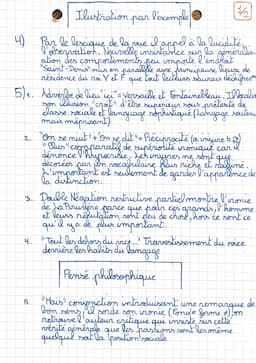 Illustration par l'exemple
4) Par le lexique de la vue il appel à la lucidité,
l'observation. Nouvelle insistance sur la générali-
ation des comportements peu importe l'endroit
"Saint-Denis" mis en parallèle avec principaux lieux de
résidence du roi V et F que tout lecteurs sauraient déchiffrer
5) 1. Adverbe de lieu "ici" = Versaille et Fontainebleau.
son illusion "croit" d'être supérieur sous prétexte de
classe sociale et langage sophistiqué (langage soutenu
mais méprisant)
2. "On se nuit" + "on se dit" = Réciprocité
+ "Plus" comparatif de supériorité ironique car il
dénonce l'hypocrisie. Les injures ne sont que
décorées par un vocabulaire plus riche et raffiné.
L'important est seulement de garder l'apparence de
la distinction.
3. Double Négation restrictive partiel montre l'ironie
de La Bruyère parce que pour ces grands, l'homme
et leurs réputation sont peu de chose, hors ce sont ce
qu'il y a de plus important.
4. "Tout les dehors du vice..." Travestissement du vice
derrière les habits du langage
Pensé philosophique
5. "Mais" conjonction introduisant une remarque de
bon sens, il sonde son ironie (fond ≠ forme) on
retrouve l'auteur critique qui insiste sur cette
vérité générale que les passions sont les même
quelque soit la position sociale